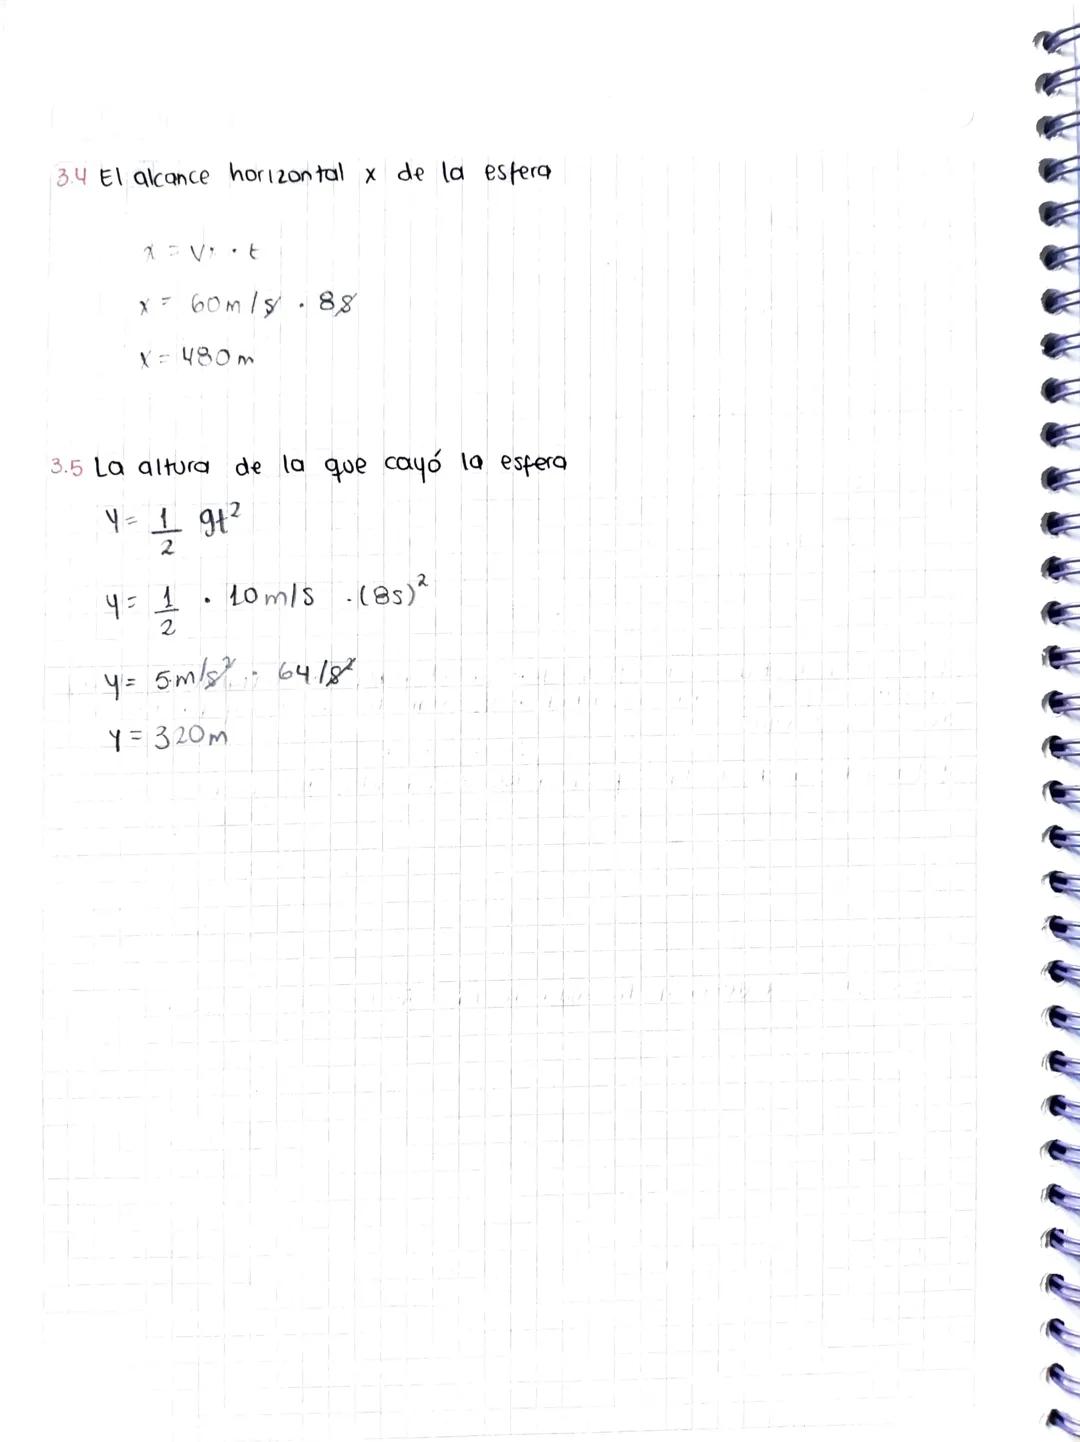 3.4 El alcance horizontal x de la esfera
x = Vi · t
x = 60m/s · 8s
x = 480m
3.5 La altura de la que cayó la esfera
y = 1/2 gt²
y = 1/2 · 10m/s · (8s)²
y = 5m/s² · 64/s²
y = 320m